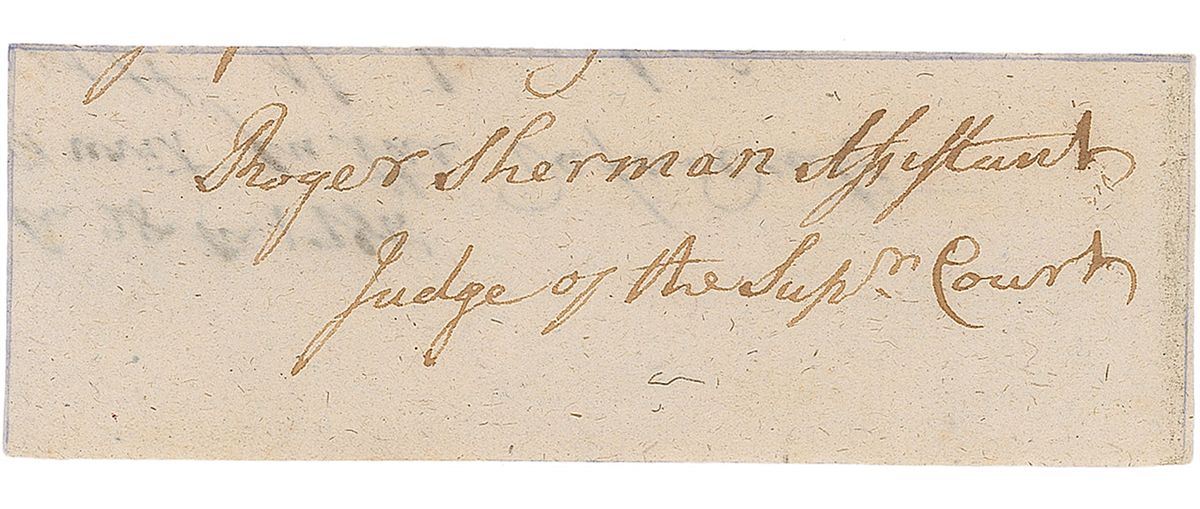 Roger Sherman Assistant
Judge of the Supr. Court